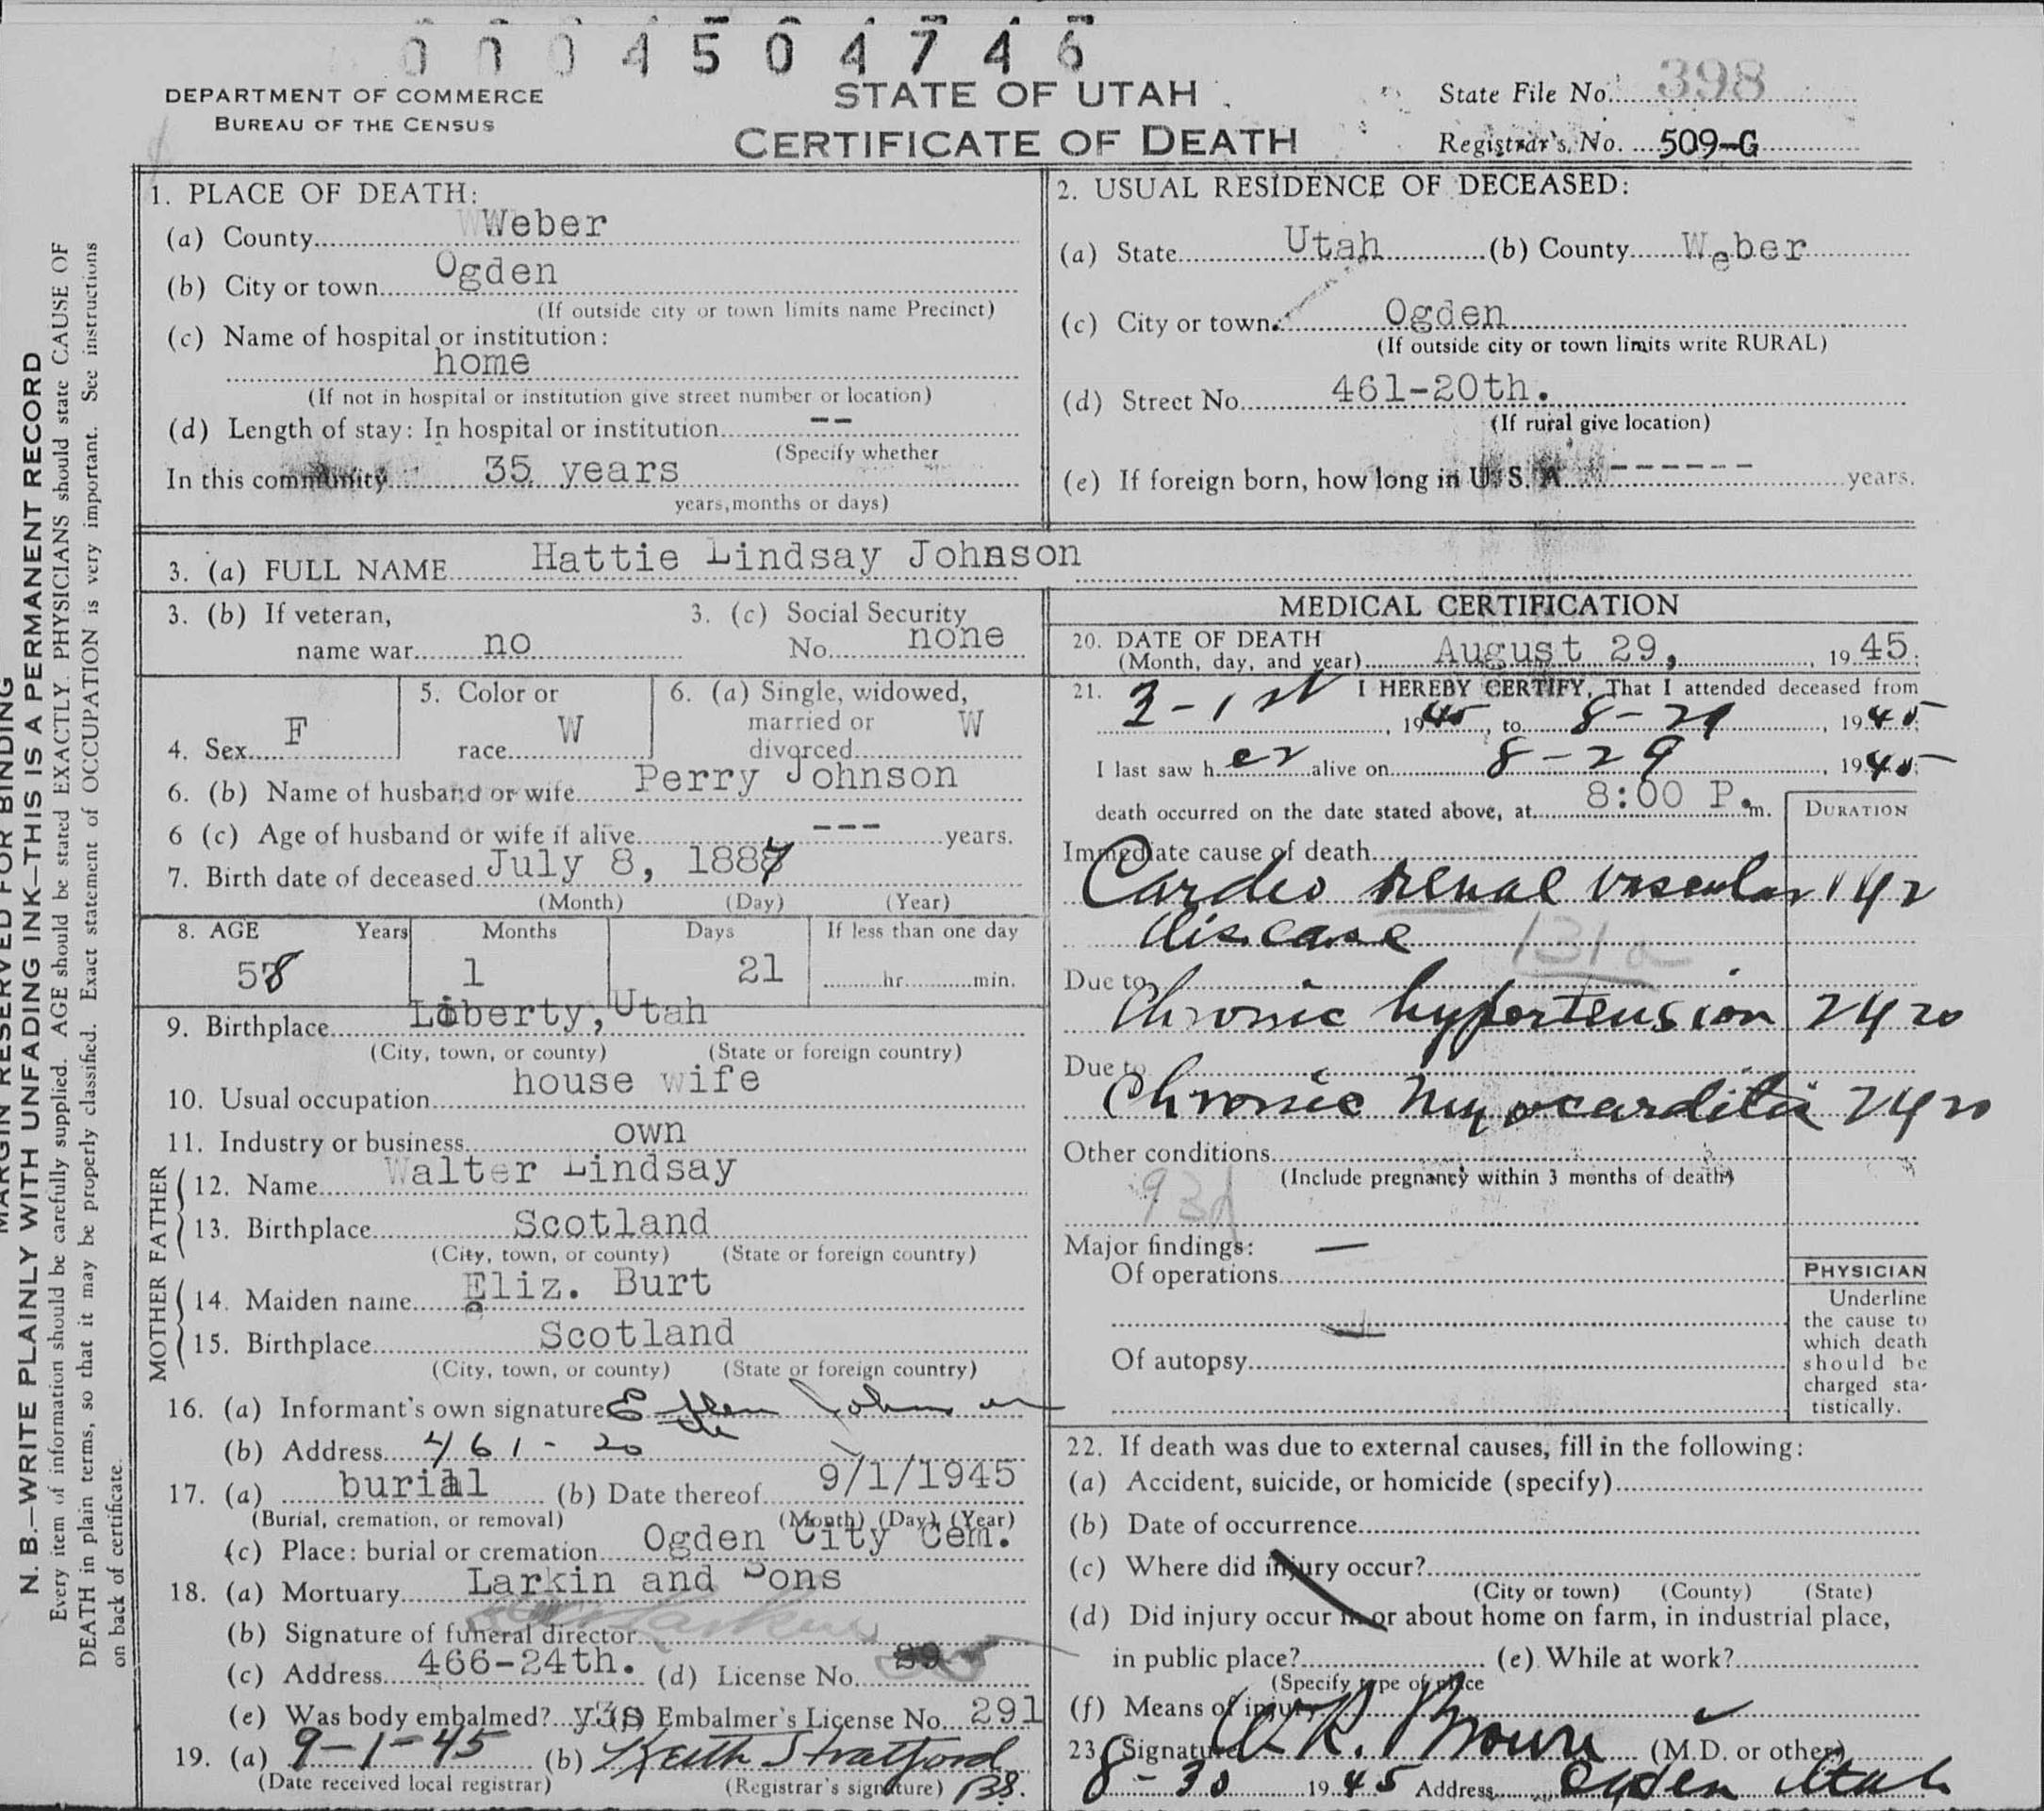 0004504746
DEPARTMENT OF COMMERCE
BUREAU OF THE CENSUS
STATE OF UTAH
CERTIFICATE OF DEATH
State File No. 398
Registrar's No. 509-G
MARGIN RESERVED FOR BINDING
N. B.—WRITE PLAINLY WITH UNFADING INK—THIS IS A PERMANENT RECORD
Every item of information should be carefully supplied. AGE should be stated EXACTLY. PHYSICIANS should state CAUSE OF
DEATH in plain terms, so that it may be properly classified. Exact statement of OCCUPATION is very important. See instructions
on back of certificate.
1. PLACE OF DEATH:
(a) County Weber
(b) City or town Ogden
(If outside city or town limits name Precinct)
(c) Name of hospital or institution:
home
(If not in hospital or institution give street number or location)
(d) Length of stay: In hospital or institution --
(Specify whether
In this community 35 years
years, months or days)
2. USUAL RESIDENCE OF DECEASED:
(a) State Utah (b) County Weber
(c) City or town Ogden
(If outside city or town limits write RURAL)
(d) Street No. 461-20th.
(If rural give location)
(e) If foreign born, how long in U. S. A. ------ years.
3. (a) FULL NAME Hattie Lindsay Johnson
3. (b) If veteran, 3. (c) Social Security
name war no No. none
4. Sex F
5. Color or
race W
6. (a) Single, widowed,
married or
divorced W
6. (b) Name of husband or wife Perry Johnson
6 (c) Age of husband or wife if alive --- years.
7. Birth date of deceased July 8, 1887
(Month) (Day) (Year)
8. AGE Years Months Days If less than one day
58 1 21 hr. min.
9. Birthplace Liberty, Utah
(City, town, or county) (State or foreign country)
10. Usual occupation house wife
11. Industry or business own
FATHER
12. Name Walter Lindsay
13. Birthplace Scotland
(City, town, or county) (State or foreign country)
MOTHER
14. Maiden name Eliz. Burt
15. Birthplace Scotland
(City, town, or county) (State or foreign country)
16. (a) Informant's own signature Johnson
(b) Address 461-20
17. (a) burial (b) Date thereof 9/1/1945
(Burial, cremation, or removal) (Month) (Day) (Year)
(c) Place: burial or cremation Ogden City Cem.
18. (a) Mortuary Larkin and Sons
(b) Signature of funeral director Larkin
(c) Address 466-24th. (d) License No.
(e) Was body embalmed? y3s (f) Embalmer's License No. 291
19. (a) 9-1-45 (b) Keith Stratford
(Date received local registrar) (Registrar's signature) BS.
MEDICAL CERTIFICATION
20. DATE OF DEATH
(Month, day, and year) August 29, 1945
21. I HEREBY CERTIFY, That I attended deceased from
3-1st, 1945, to 8-29, 1945
I last saw her alive on 8-29, 1945
death occurred on the date stated above, at 8:00 P.m.
DURATION
Immediate cause of death
Cardio renal vascular 1 yr
disease 131a
Due to
Chronic hypertension 2 yrs
Due to
Chronic myocarditis 2 yrs
Other conditions
(Include pregnancy within 3 months of death)
93d
Major findings: —
Of operations
Of autopsy
PHYSICIAN
Underline
the cause to
which death
should be
charged sta-
tistically.
22. If death was due to external causes, fill in the following:
(a) Accident, suicide, or homicide (specify)
(b) Date of occurrence
(c) Where did injury occur?
(City or town) (County) (State)
(d) Did injury occur in or about home on farm, in industrial place,
in public place? (e) While at work?
(Specify type of place
(f) Means of injury
23. Signature R. Brown (M.D. or other)
8-30 1945 Address Ogden Utah